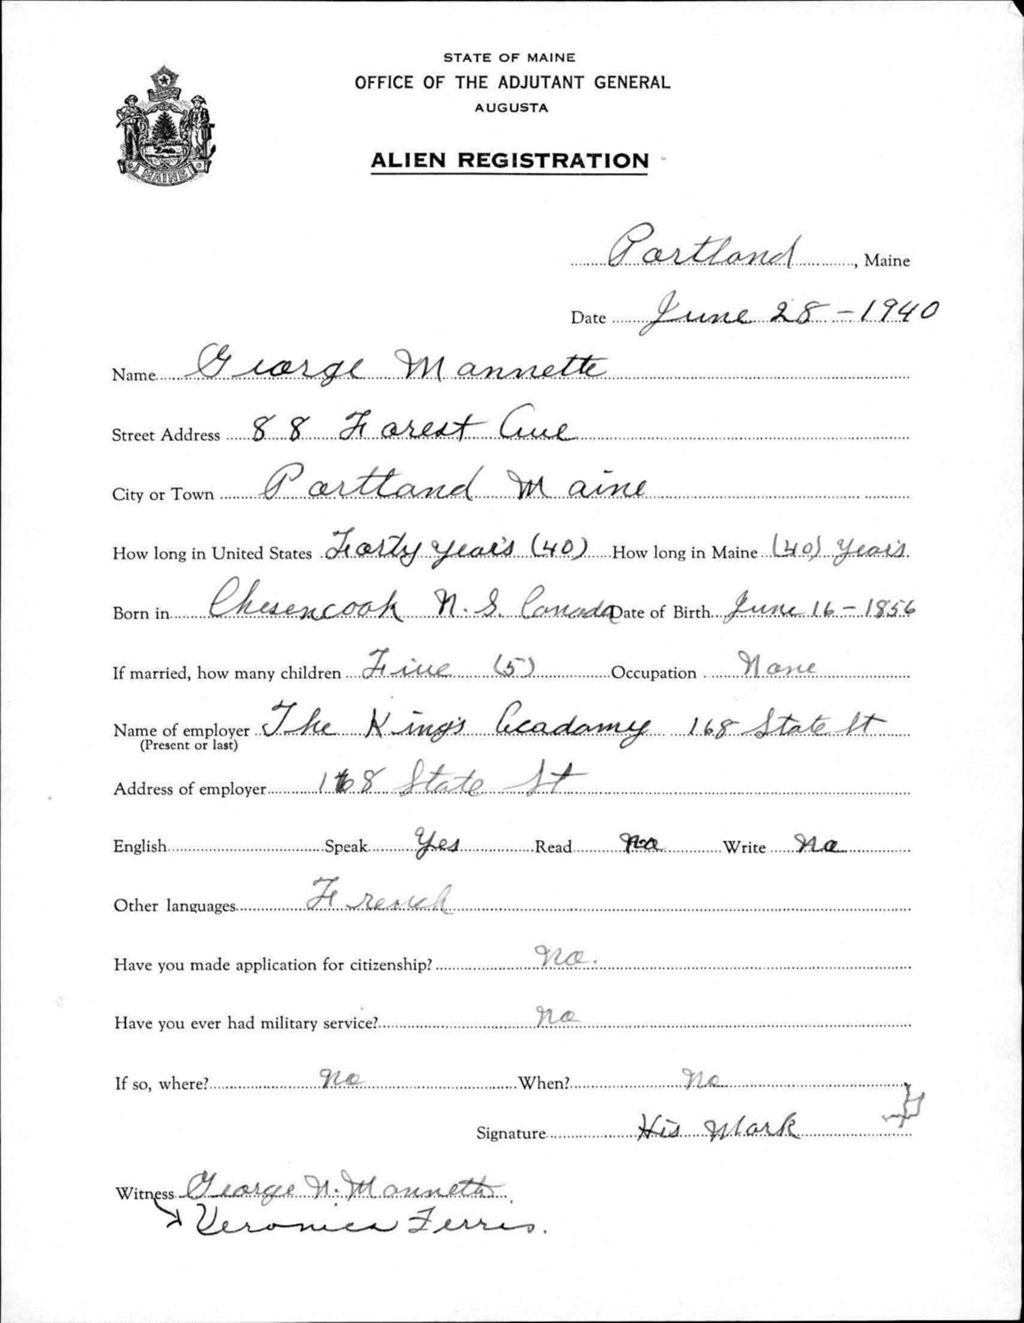 STATE OF MAINE
OFFICE OF THE ADJUTANT GENERAL
AUGUSTA
ALIEN REGISTRATION
MAINE
Portland, Maine
Date June 28 - 1940
Name George Mannette
Street Address 88 Forest Ave
City or Town Portland Maine
How long in United States Forty years (40) How long in Maine (40) Years
Born in Chesencook N.S. Canada Date of Birth June 16 - 1856
If married, how many children Five (5) Occupation None
Name of employer The King's Acadamy 168 State St
(Present or last)
Address of employer 168 State St
English Speak Yes Read No Write No
Other languages French
Have you made application for citizenship? No.
Have you ever had military service? No
If so, where? No When? No
Signature His Mark
Witness George N. Mannette
Veronica Ferris.